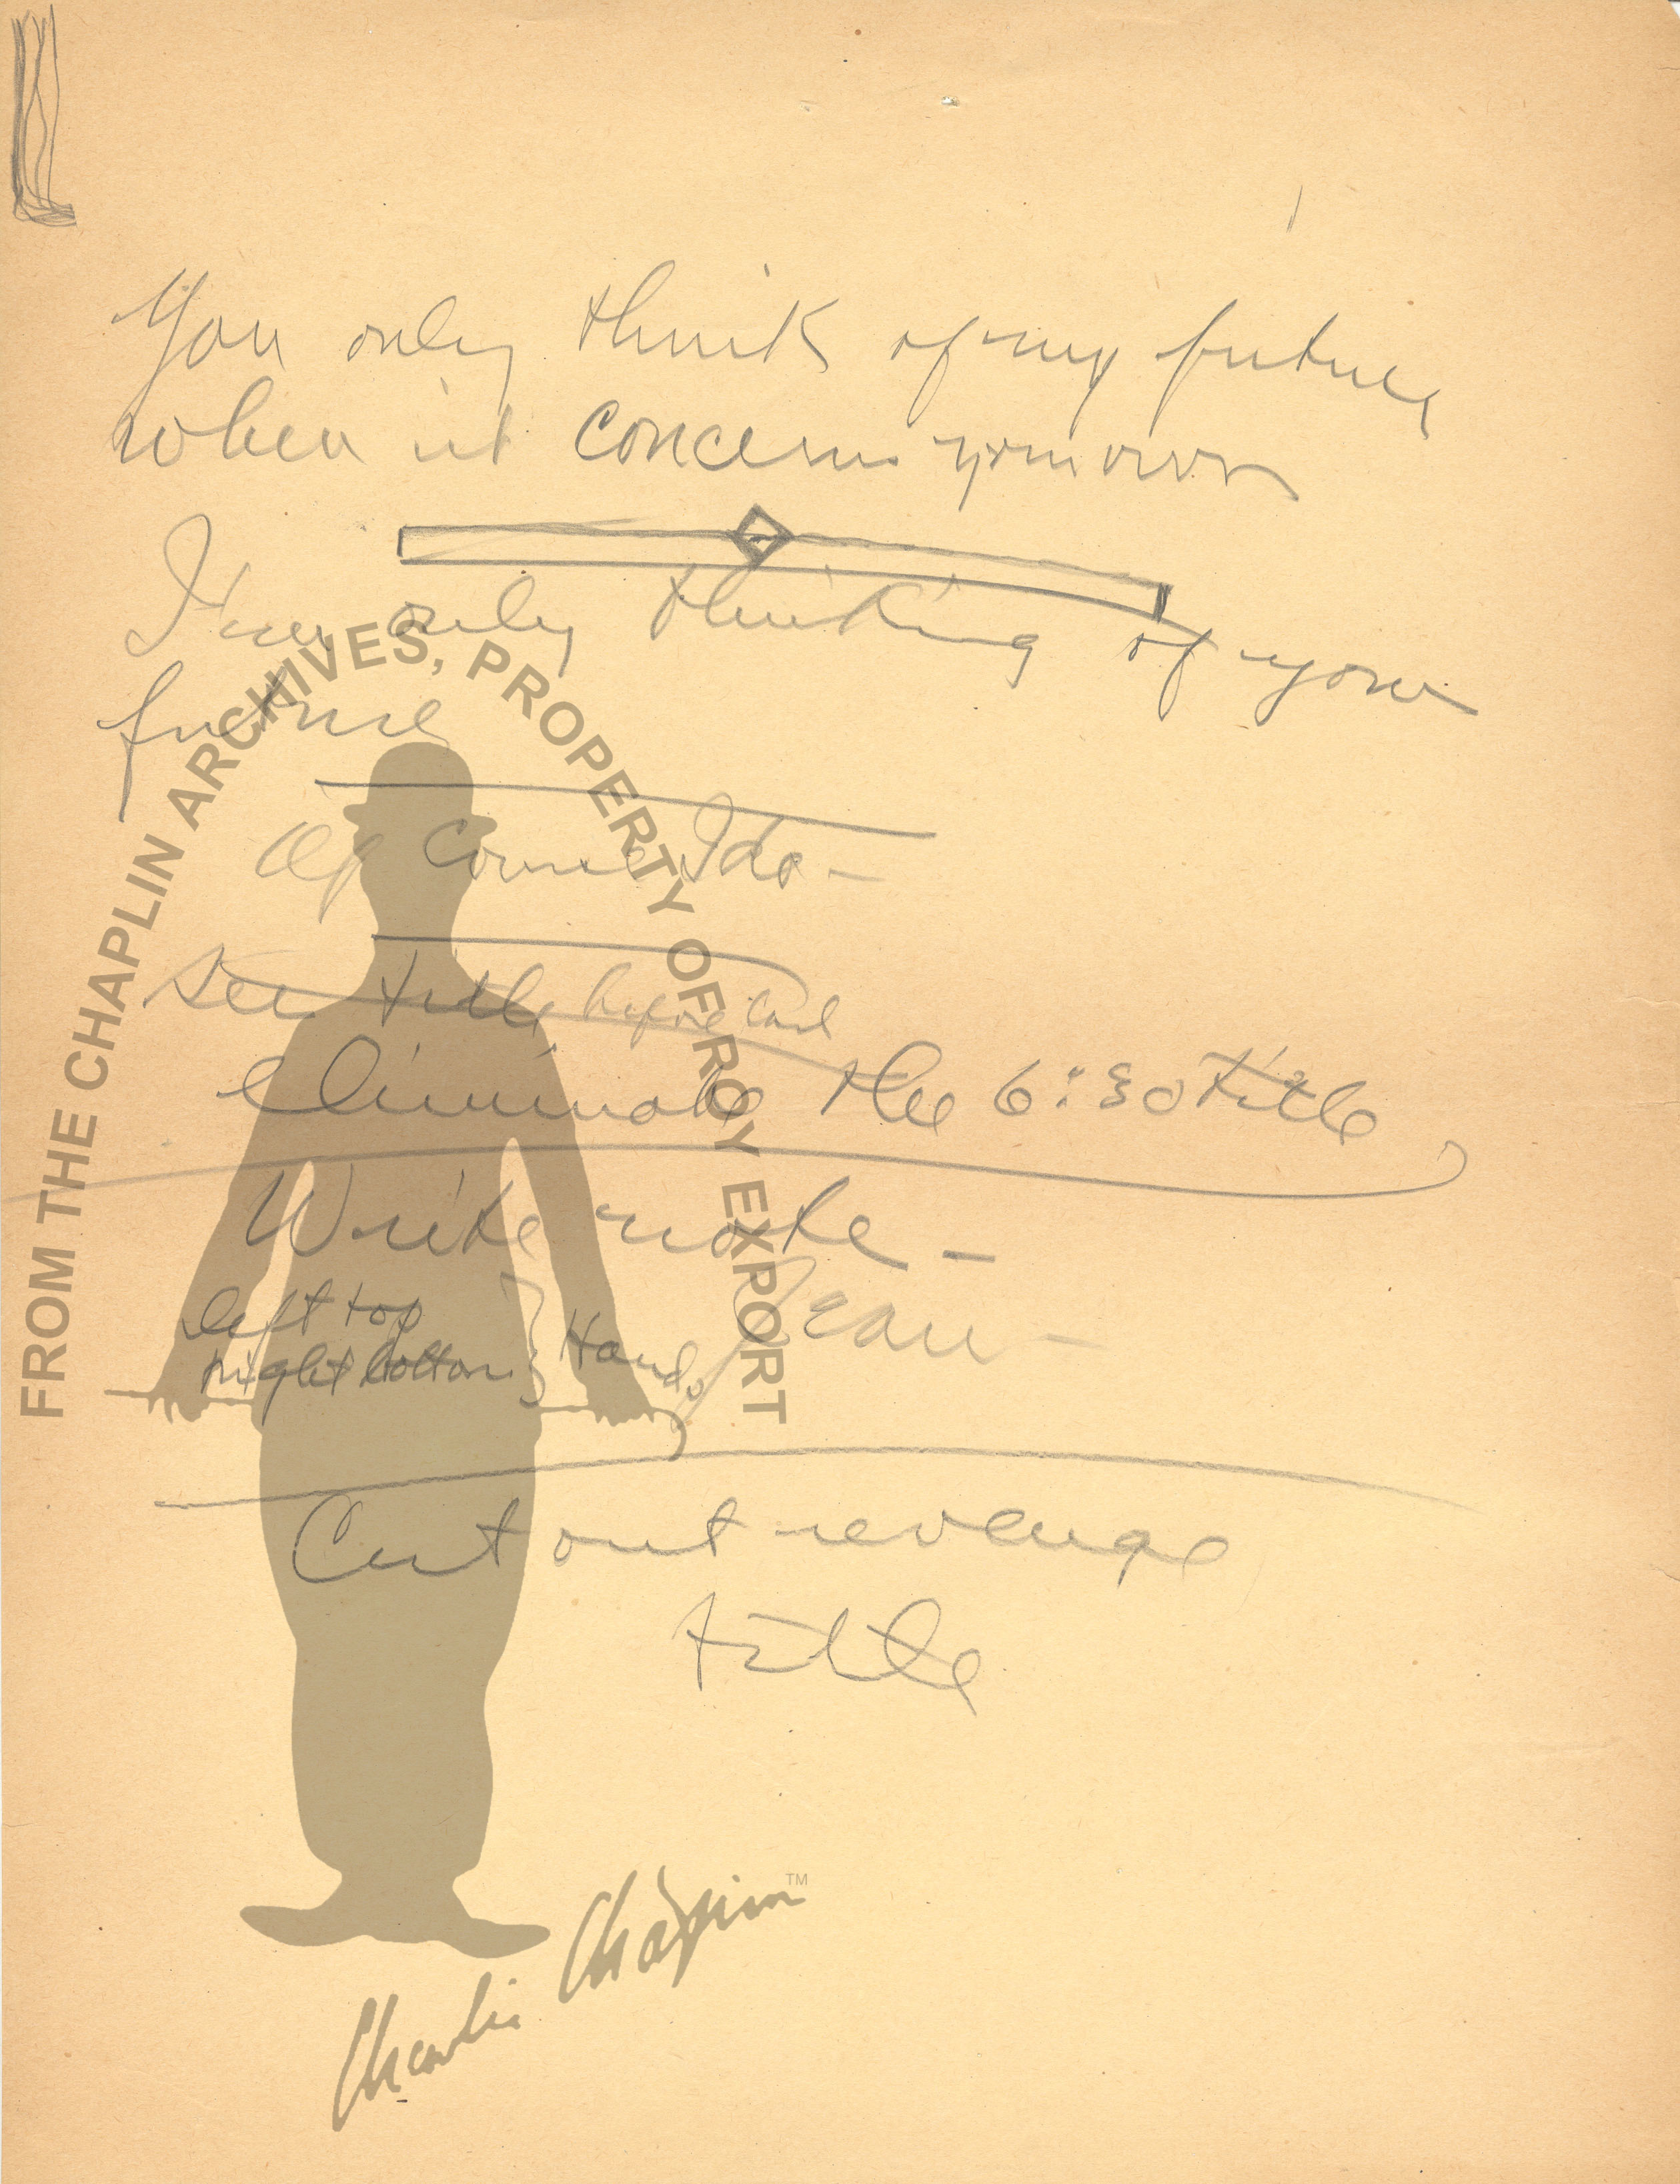 You only think of my future
when it concerns your own
I'm only thinking of your
future
Of course I do -
See title before last
eliminate the 6:30 title
Write note -
Jean -
left top
right bottom } Hands
Cut out revenge
title
FROM THE CHAPLIN ARCHIVES, PROPERTY OF ROY EXPORT
Charlie Chaplin™